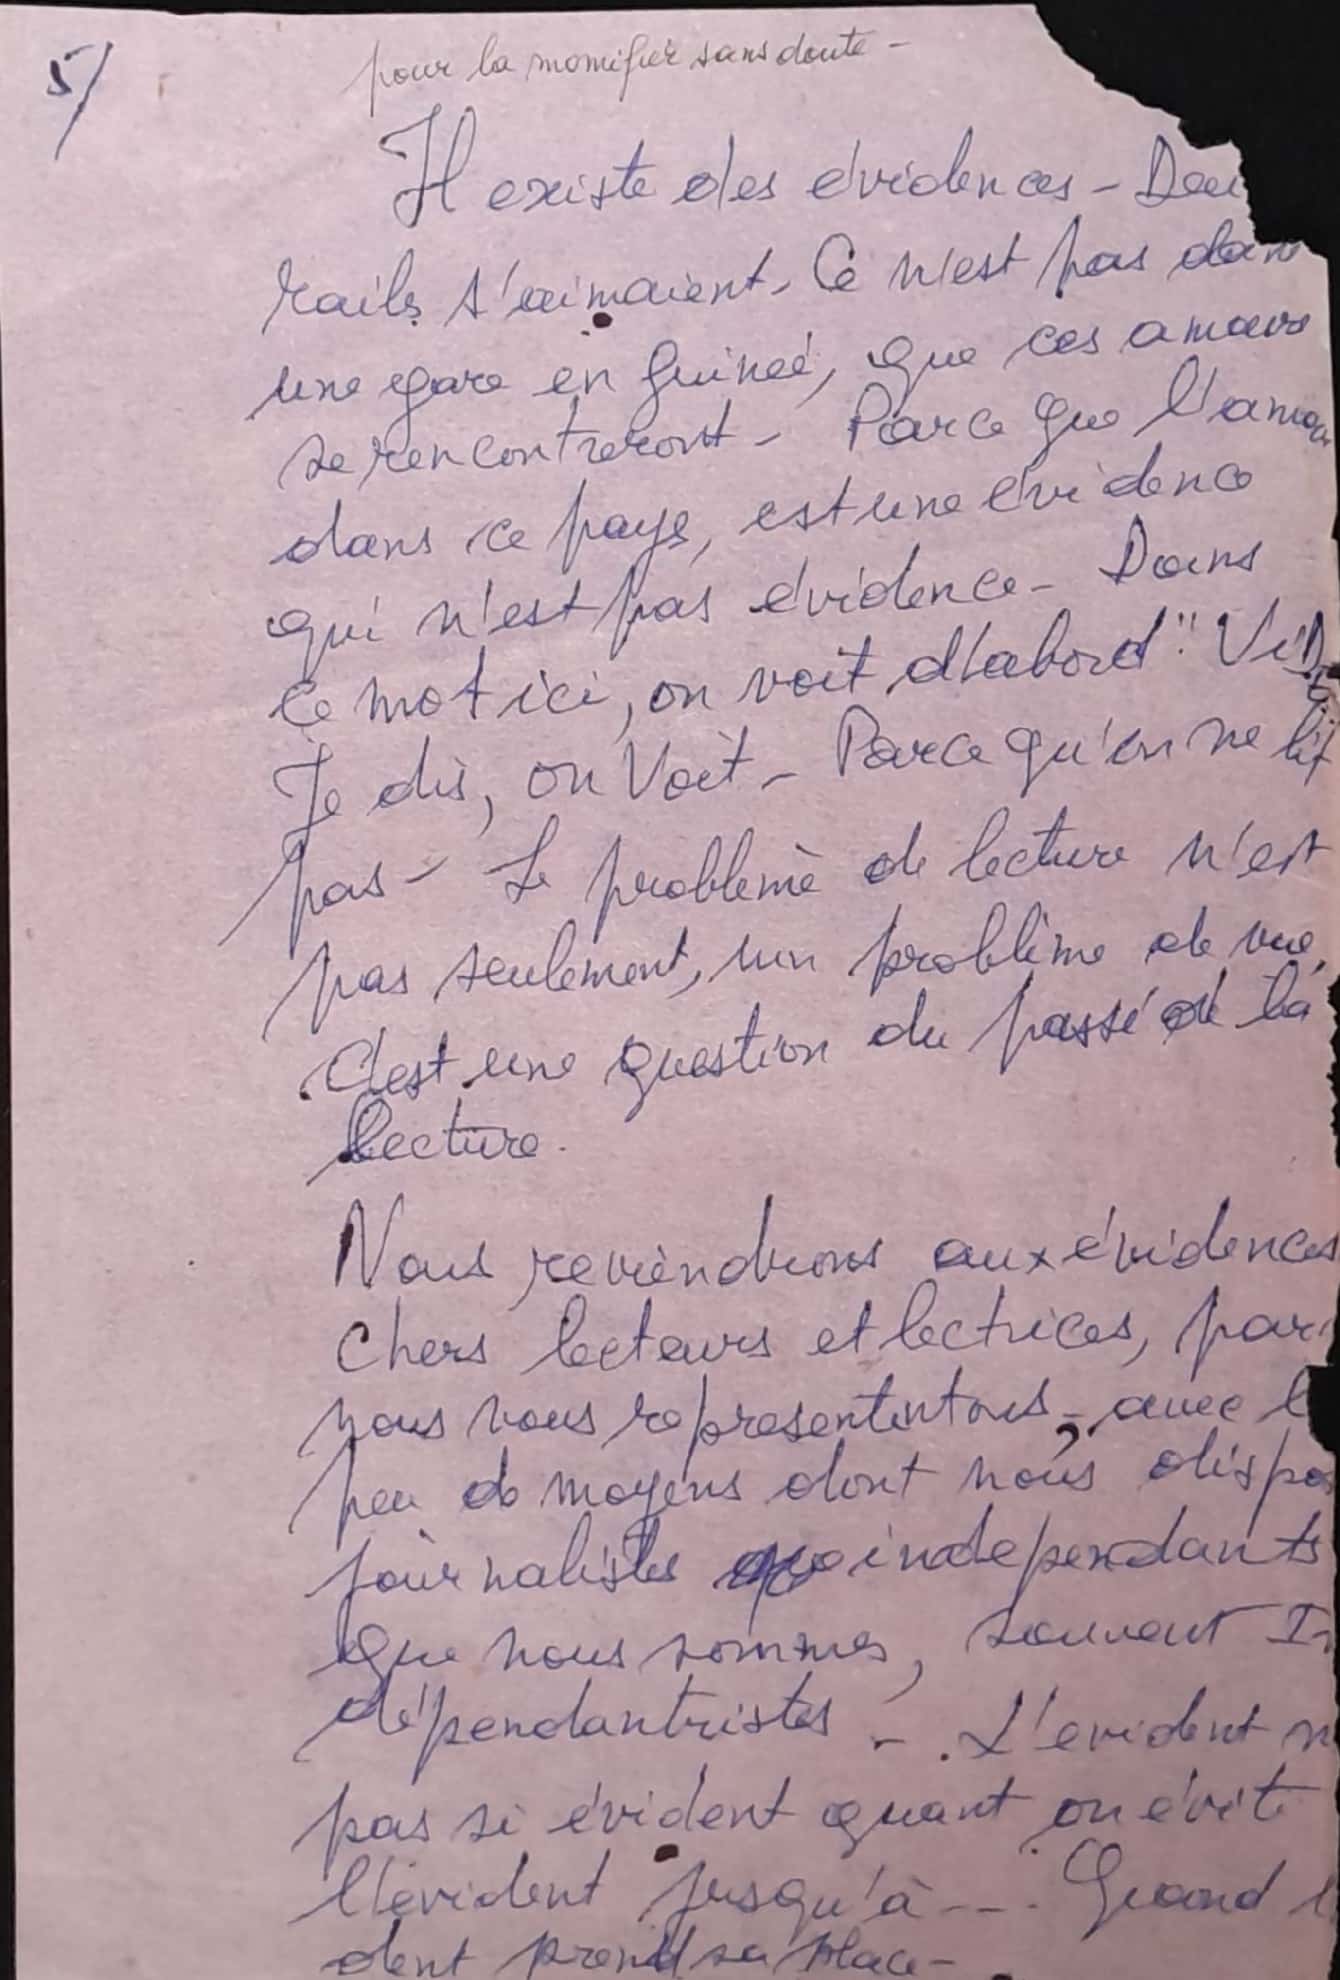 5/
pour la momifier sans doute -
Il existe des évidences - Deu
rails s'aimaient - Ce n'est pas dan
une gare en guineé, que ces amours
se rencontreront - Parce que l'amou
dans ce pays, est une évidence
qui n'est pas évidence - Dans
ce mot ici, on voit d'abord "ViDE
Je dis, on voit - Parce qu'on ne lit
pas - Le problème de lecture n'est
pas seulement, un problème de vue,
C'est une question du passé de la
lecture.
Nous reviendrons aux évidences
chers lecteurs et lectrices, par
nous vous - avec l
peu de moyens dont nous dispo
journalistes indépendants
que nous sommes, souvent In
dépendantristes - L'evident n
pas si évident quant on évite
l'évident jusqu'à --- Quand l
dent prend sa place -